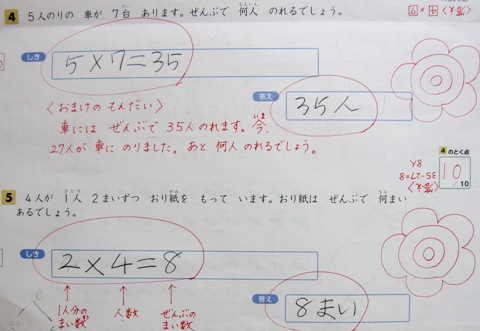 4 5人のりの 車が 7台 あります。ぜんぶで 何人 のれるでしょう。
しき 5×7=35
答え 35人
〈おまけの もんだい〉
車には ぜんぶで 35人のれます。今、
27人が 車に のりました。あと 何人 のれるでしょう。
4 のとく点
10
/10
35-27=8
8人
5 4人が 1人 2まいずつ おり紙を もって います。おり紙は ぜんぶで 何まい
あるでしょう。
しき 2×4=8
↑ ↑ ↑
1人分の まい数
人数
ぜんぶの まい数
答え 8まい